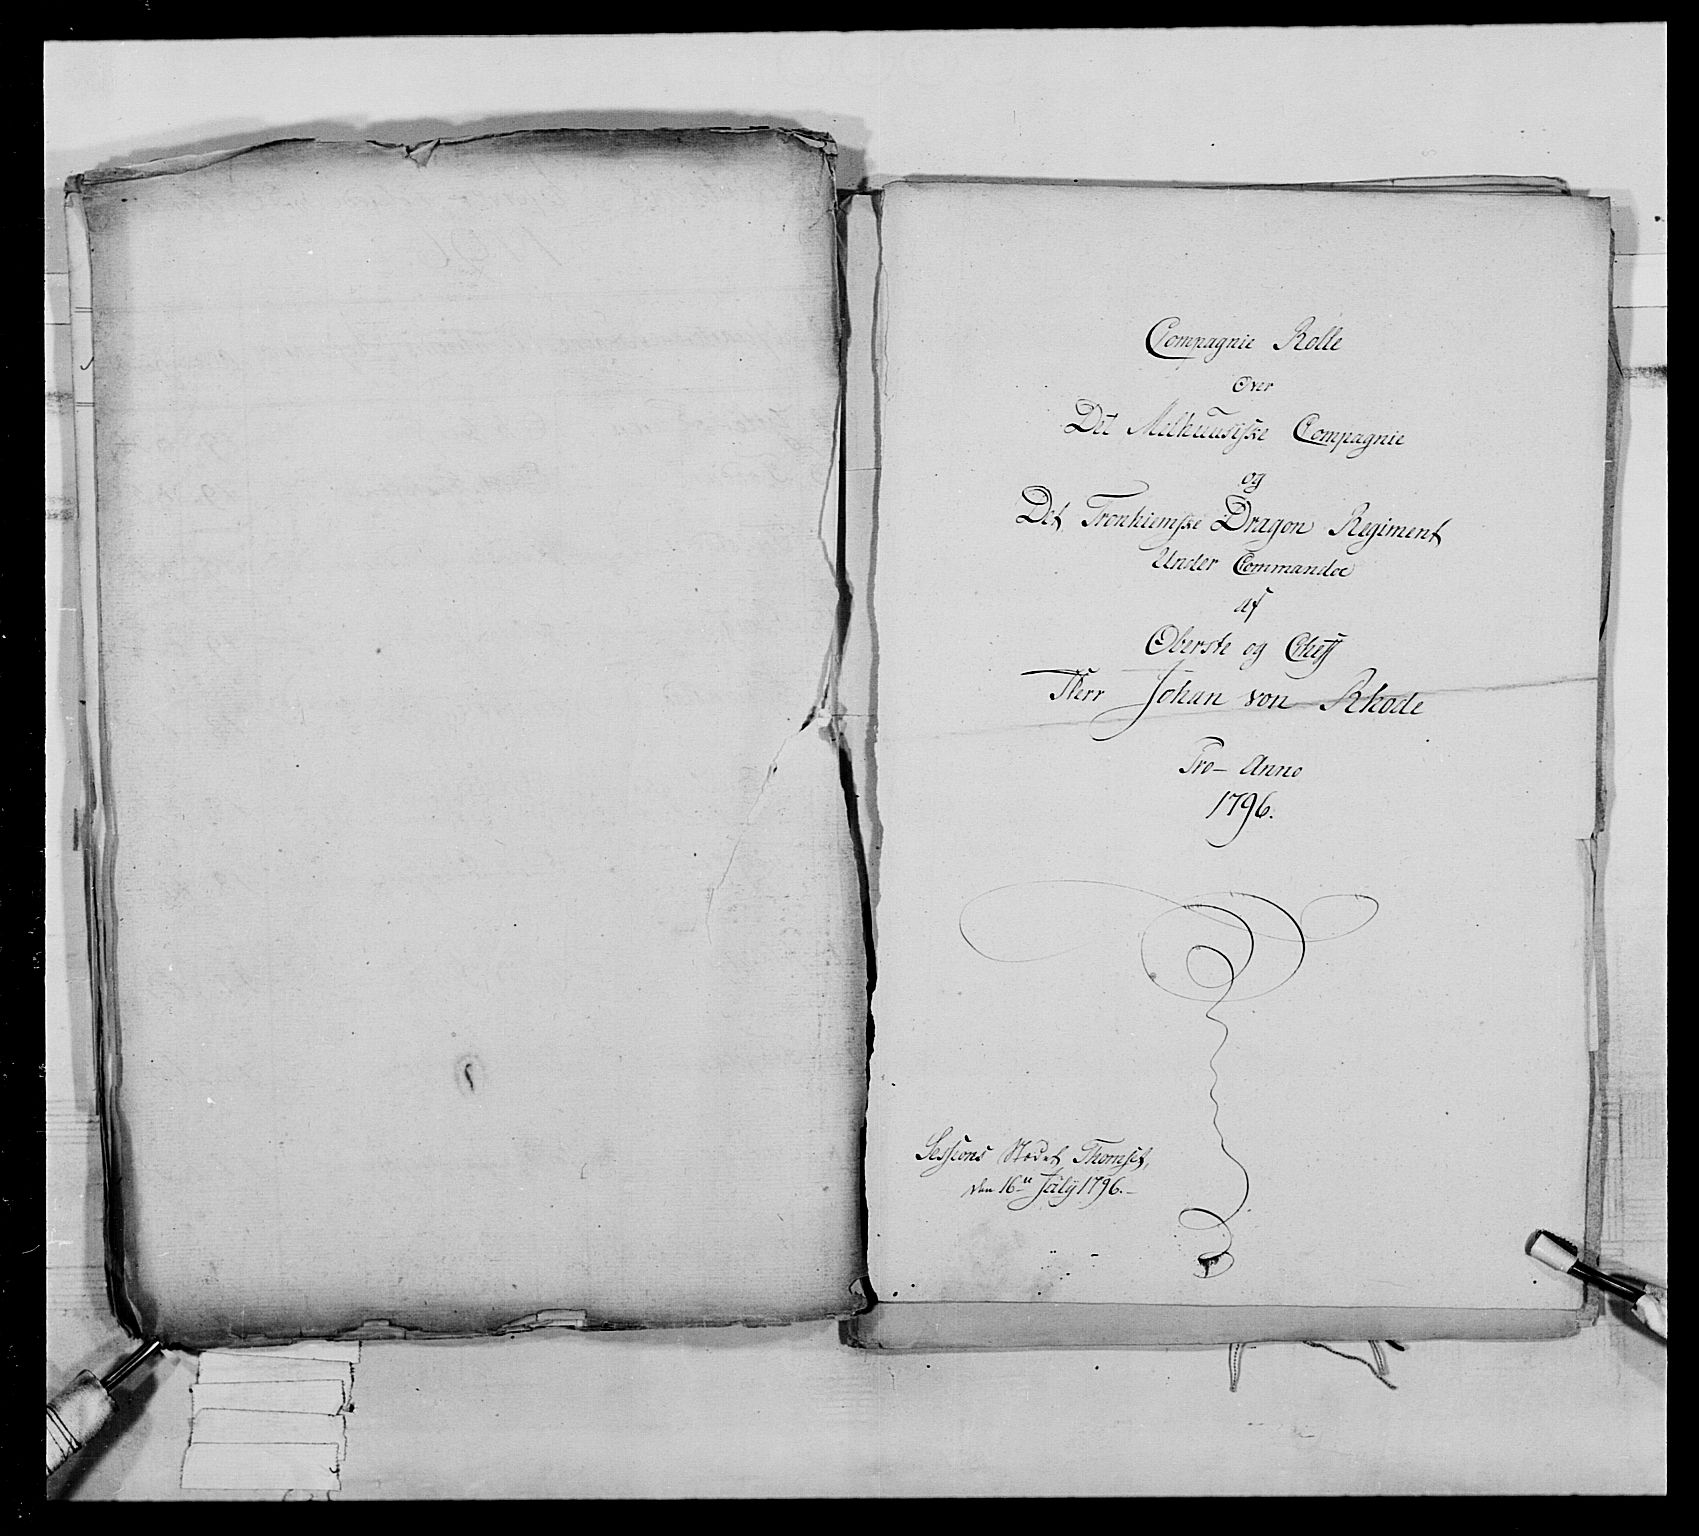 Compagnie Rolle
Over
Det Melhuusiske Compagnie
og
Det Tronhiemske Dragon Regiment
Under Commandoe
af
Oberste og Cheff
Herr Johan von Rhode
Pro- Anno
1796.
Sessions Stædet Thomset,
den 16de July 1796.-